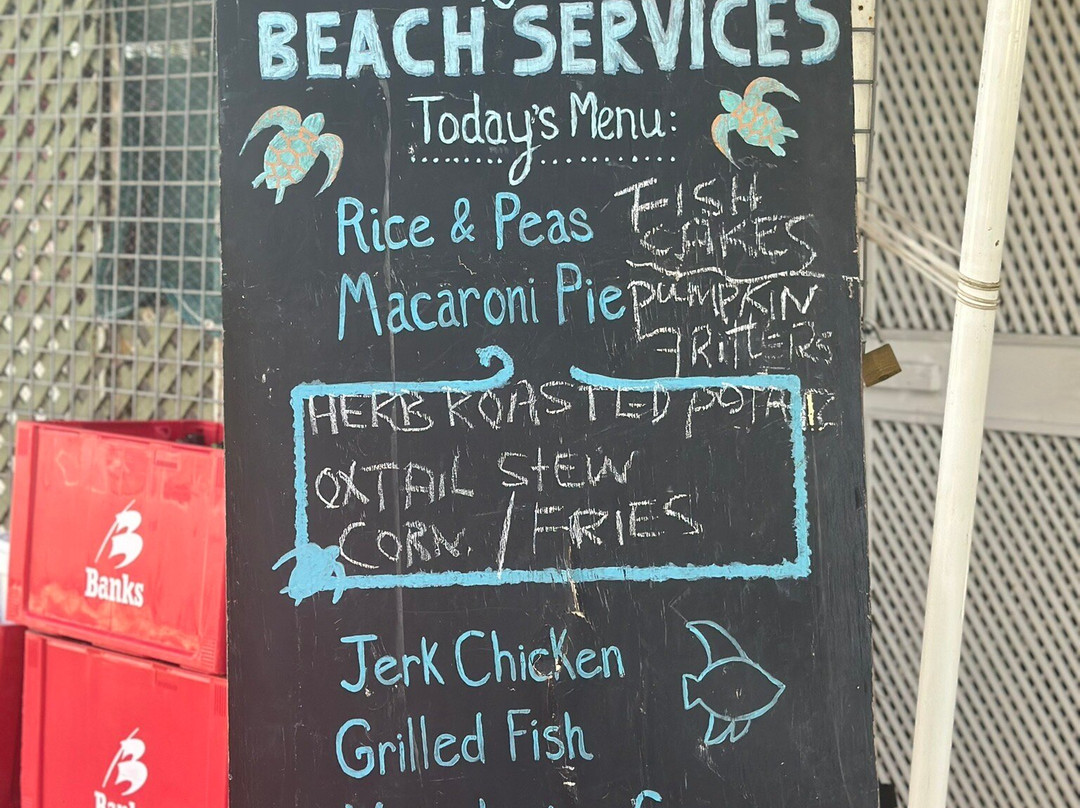 BEACH SERVICES
Today's Menu:
Rice & Peas
Macaroni Pie
FISH
CAKES
PUMPKIN
FRITTERS
HERB ROASTED POTA
OXTAIL STEW
CORN / FRIES
Jerk Chicken
Grilled Fish
B
Banks
B